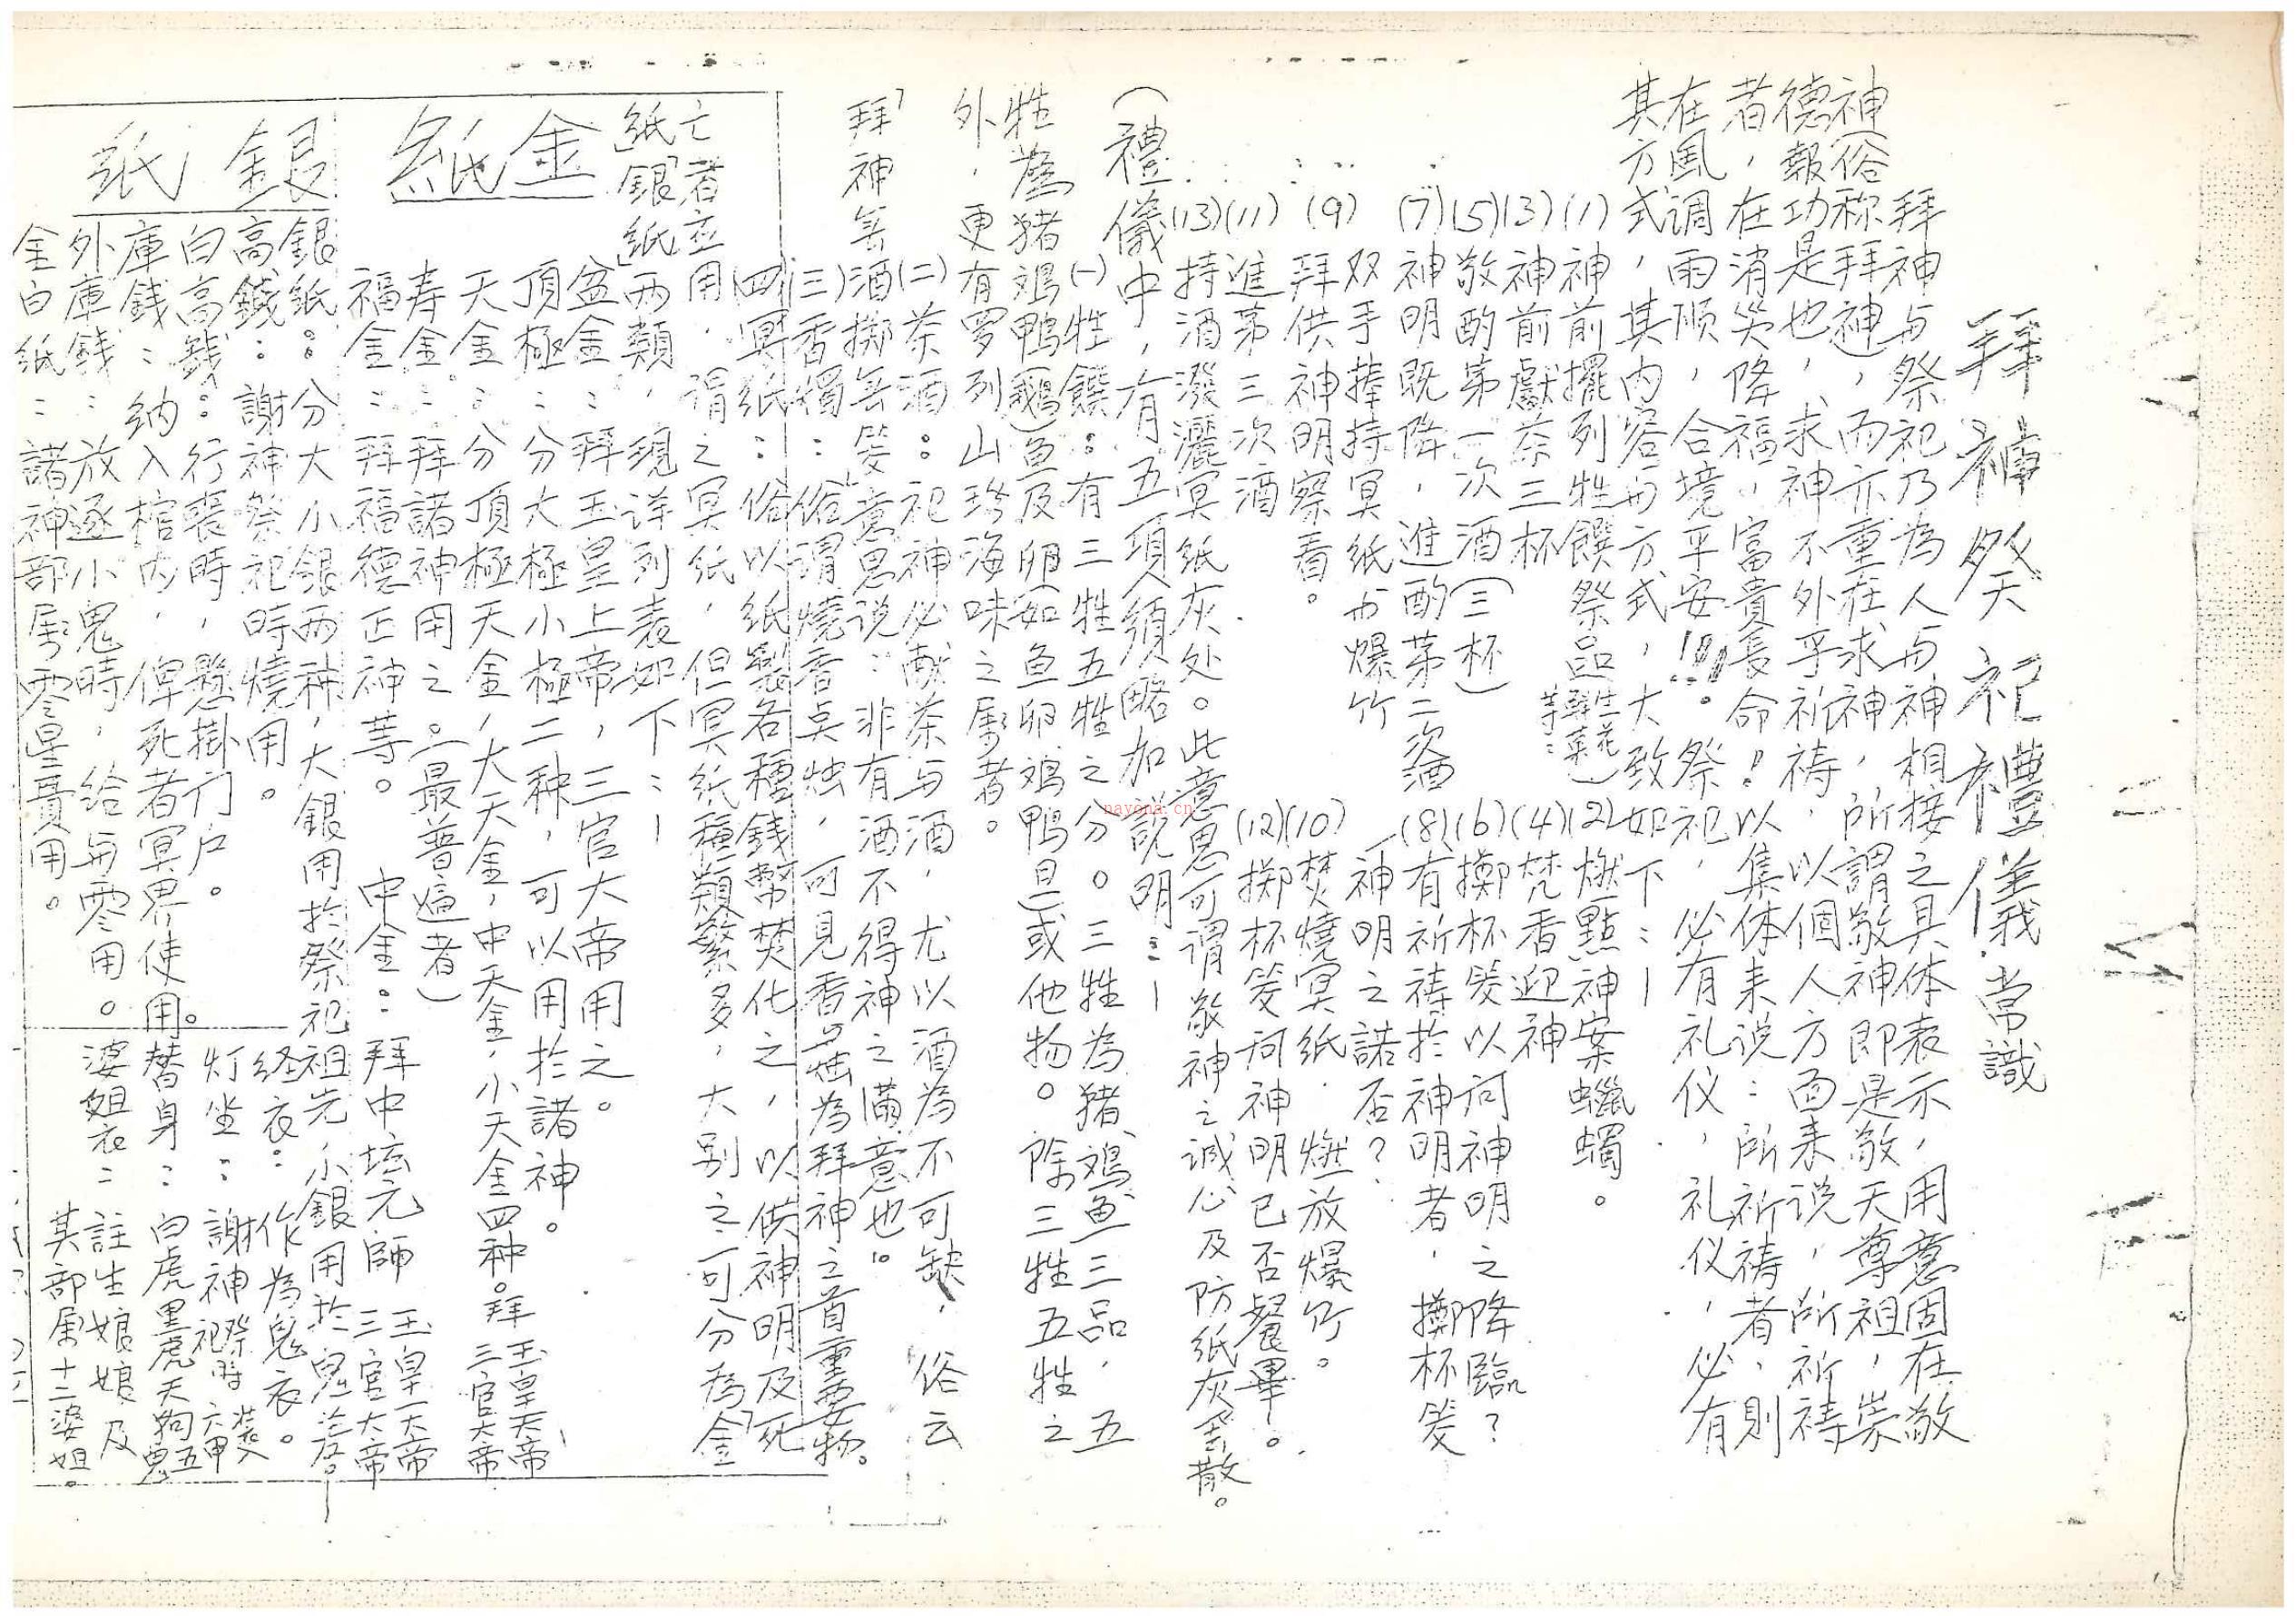 拜神祭祀禮儀常識
拜神与祭祀乃為人与神相接之具体表示，用意固在敬
神（俗称拜神），而亦重在求神，所謂敬神即是敬天尊祖，崇
德報功是也，求神不外乎祈祷，以個人方面来说，所祈祷
者，在消災降福，富貴長命！以集体来说：所祈祷者，則
在風调雨順，合境平安!!!。祭祀，必有礼仪，礼仪，必有
其方式，其内容与方式，大致如下：—
(1)神前擺列牲饌祭品（生花鮮菓等：）(2)燃點神案蠟蠋。
(3)神前獻茶三杯 (4)焚香迎神
(5)敬酌第一次酒（三杯） (6)擲杯筊以问神明之降臨？
(7)神明既降，進酌第二次酒 (8)有祈祷於神明者，擲杯筊
双手捧持冥纸与爆竹 神明之諾否？
(9)拜供神明察看。 (10)焚燒冥纸．燃放爆竹。
(11)進第三次酒 (12)擲杯筊问神明已否餐畢！。
(13)持酒潑灑冥纸灰处。此意思可谓敬神之诚心及防紙灰飛散。
（禮儀中，有五項須略加説明：—
(一)牲饌：有三牲五牲之分。三牲為猪、鴉魚三品，五
牲為猪鴉鴨（鵝）魚及卵（如魚卵鴉鴨旦）或他物。除三牲五牲之
外，更有罗列山珍海味之屬者。
(二)茶酒：祀神必献茶与酒，尤以酒為不可缺，俗云
「拜神無酒擲無筊」意思说：非有酒不得神之滿意也。
(三)香燭：俗谓燒香点烛，可見香与烛為拜神之首重要物。
(四)冥紙：俗以纸製各種錢幣焚化之，以供神明及死
亡者应用，谓之冥纸，但冥纸種類繁多，大别之可分為「金
紙」「銀紙」两類，現详列表如下：—
金紙
盆金：拜玉皇上帝，三官大帝用之。
頂極：分大極小極二种，可以用於諸神。
天金：分頂極天金，大天金，中天金，小天金四种。拜玉皇天帝、三官大帝
寿金：拜諸神用之。（最普遍者）
福金：拜福德正神等。 中金：拜中坛元師 玉皇大帝 三官大帝
銀紙
銀紙：分大小銀两种，大銀用於祭祀祖先，小銀用於鬼
高錢：謝神祭祀時燒用。 经衣：作為鬼衣。
白高錢：行喪時，懸掛门户。 灯坐：謝神祭祀時
庫錢：纳入棺内，俾死者冥界使用。 替身：白虎黑虎天狗五鬼
外庫錢：放逐小鬼時，给与零用。 婆姐衣：註生娘娘及其部屬十二婆姐。
金白紙：諸神部屬零星費用。